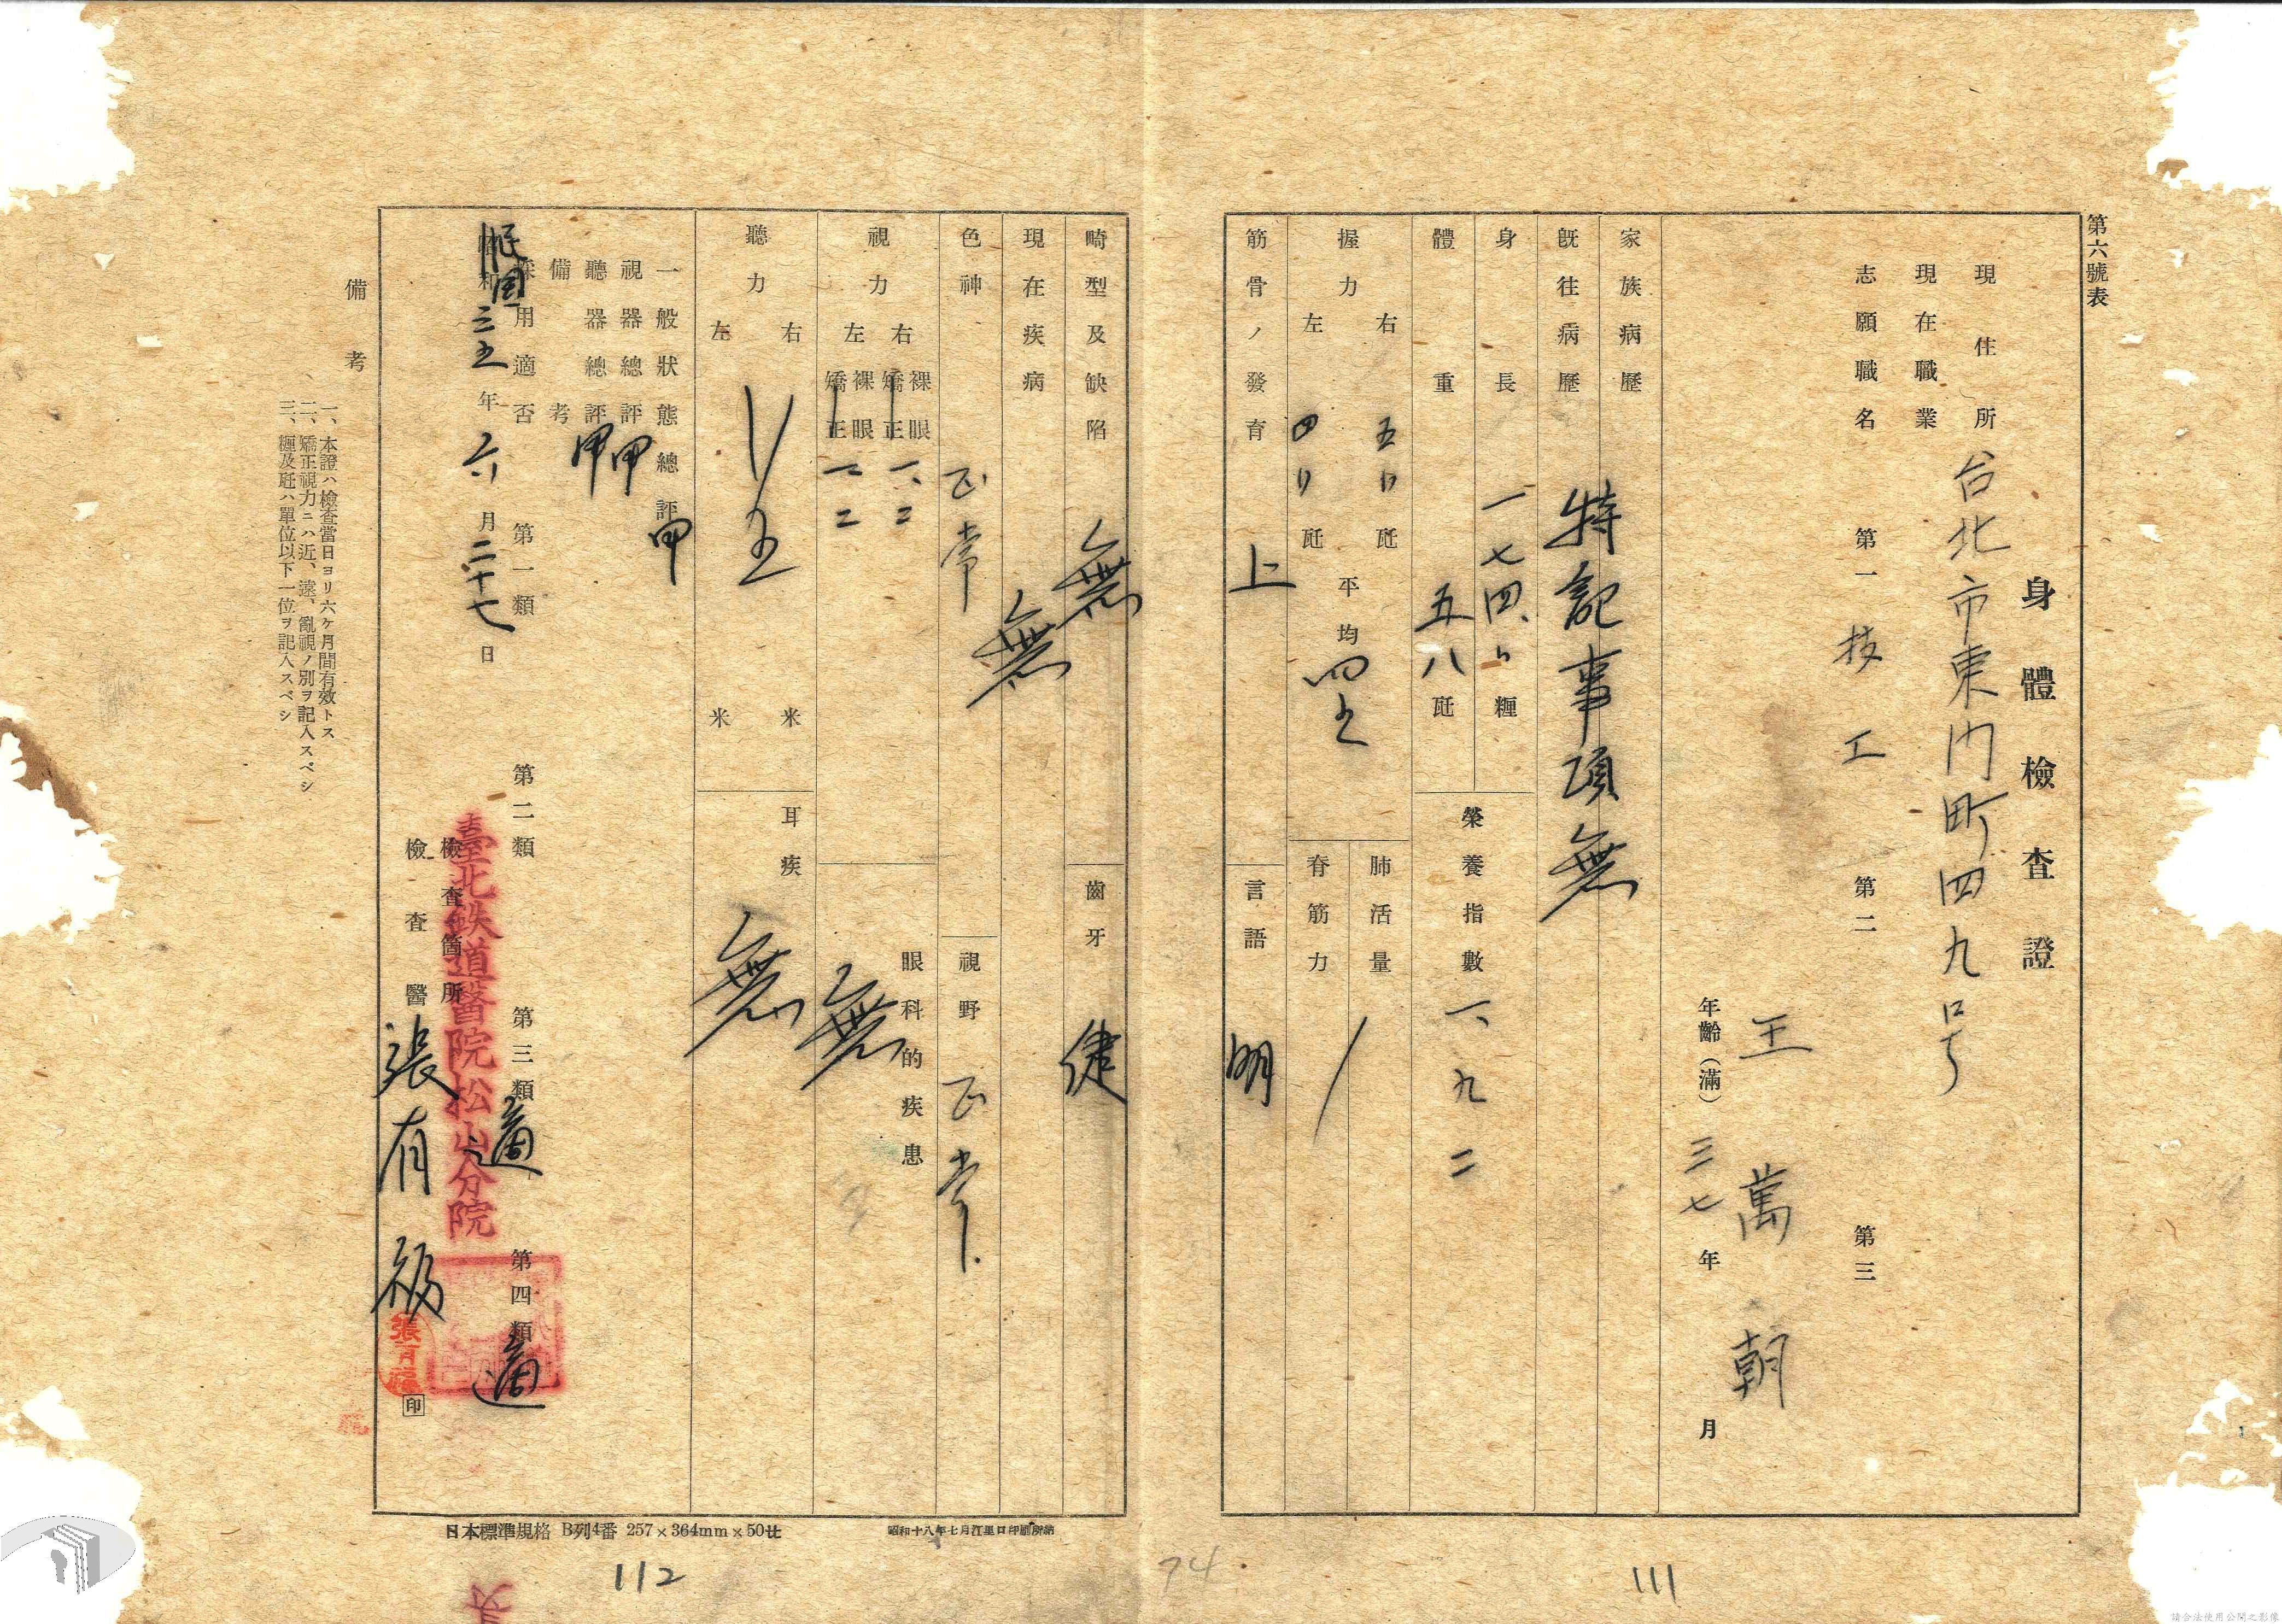 第六號表
身體檢查證
現住所 台北市東門町四九号
現在職業
志願職名 第一 技工 第二 第三
王萬朝
年齡(滿) 三七年 月
家族病歷
既往病歷 特記事項無
身長 一七四、〇糎
體重 五八瓩
榮養指數 一、九二
握力 右 五〇瓩
左 四〇瓩
平均 四五
肺活量
脊筋力
筋骨ノ發育 上
言語 明
畸型及缺陷 無
齒牙 健
現在疾病 無
色神 正常
視野 正常
視力 右 裸眼 一、二
矯正
左 裸眼 一、二
矯正
眼科的疾患 無
聽力 右 五 米
左 米
耳疾 無
一般狀態總評 甲
視器總評 甲
聽器總評 甲
備考
採用適否 第一類 第二類 第三類 適 第四類 適
民國三五年六月二十七日
檢查箇所 臺北鉄道醫院松山分院
檢查醫 張有福 印
張有福
備考
一、本證ハ檢查當日ヨリ六ケ月間有效トス
二、矯正視力ニハ近、遠、亂視ノ別ヲ記入スベシ
三、糎及瓩ハ單位以下一位ヲ記入スベシ
日本標準規格 B列4番 257×364mm×50瓩
111
74
112
請合法使用公開之影像